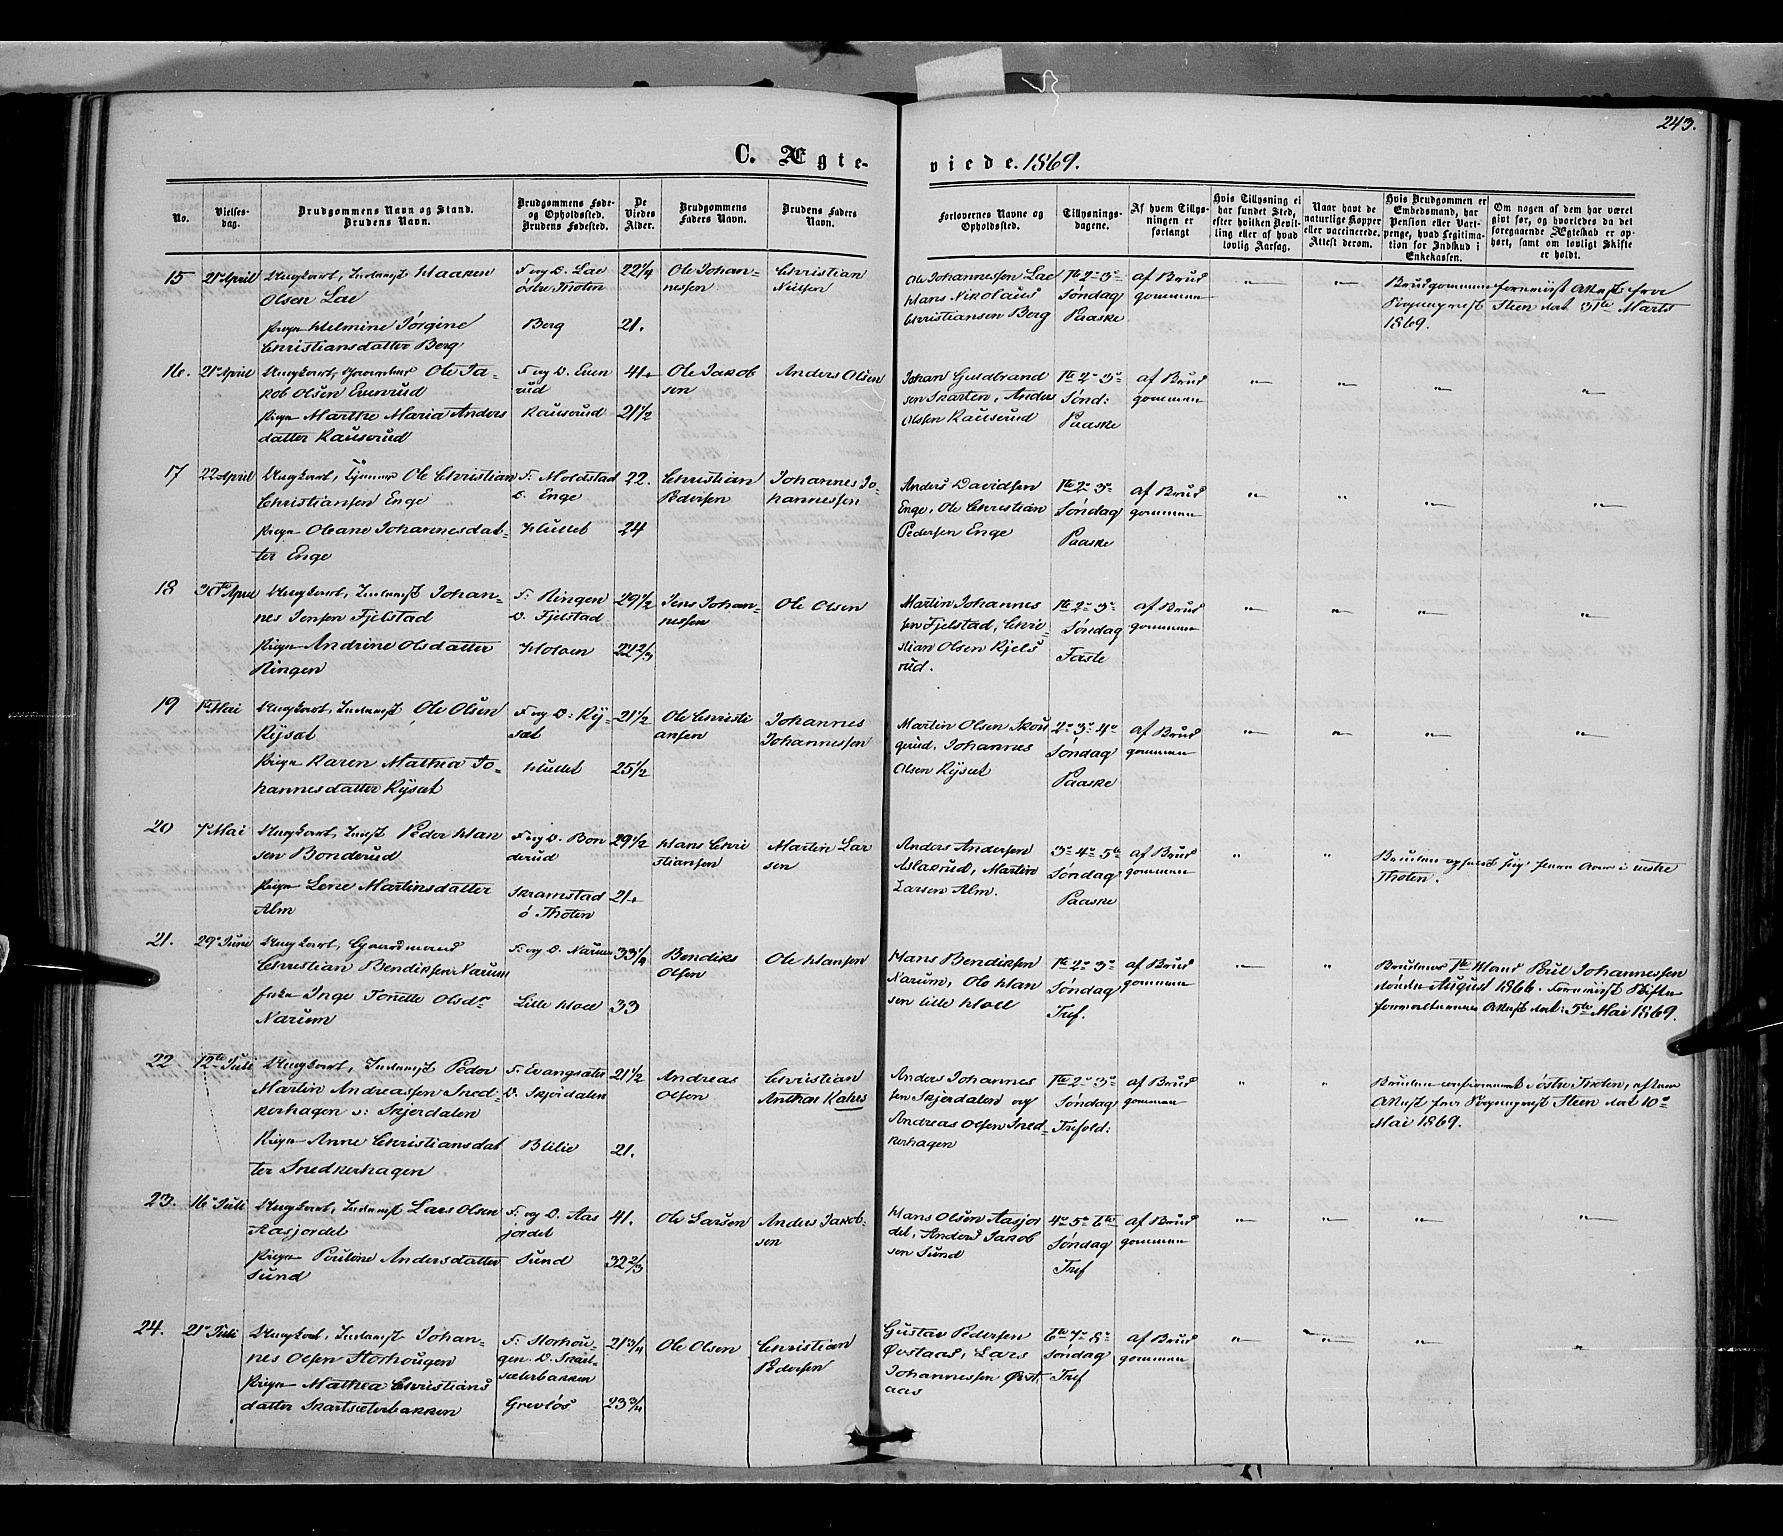 243.
C. Ægte-
viede. 1869.
No.
Vielses-
dag.
Brudgommens Navn og Stand.
Brudens Navn.
Brudgommens Føde-
og Opholdssted.
Brudens Fødested.
De
Viedes
Alder.
Brudgommens
Faders Navn.
Brudens Faders
Navn.
Forlovernes Navne og
Opholdssted.
Tillysnings-
dagene.
Af hvem Tillys-
ningen er
forlangt
Hvis Tillysning ei
har fundet Sted,
efter hvilken Bevil-
ling eller af hvad
lovlig Aarsag.
Naar havt de
naturlige Kopper
eller vaccinerede.
Attest derom.
Hvis Brudgommen er
Embedsmand, har
Pension eller Vart-
penge, hvad Legitima-
tion for Indskud i
Enkekassen.
Om nogen af dem har været
gift før, og hvorledes da det
foregaaende Ægteskab er op-
hørt, samt om lovligt Skifte
er holdt.
15
21 April
Ungkarl, Inderst Haaken
Olsen Lae
Pigen Helmine Jørgine
Christiansdatter Berg
F og O. Lae
østre Thoten
Berg
22 1/4
21.
Ole Johan-
nessen
Christian
Nielsen
Ole Johannessen Lae
Hans Nikolaus
Christiansen Berg
1te 2- 3-
Søndag
Paaske
af Brud
gommen
Brudgommen fremviist Attest fra
Sogneprest Steen dat 31te Marts
1869.
16.
21 April
Ungkarl, Ole Ja-
kob Olsen Evenrud
Pigen Marthe Maria Anders
datter Rauserud
F og O. Even
rud
Rauserud
41
21 1/2
Ole Jakob
sen
Anders Olsen
Johan Guldbrand
sen Skarten, Anders
Olsen Rauserud
1te 2- 3-
Sønd:
Paaske
af Brud
gommen
17
22 April
Ungkarl, Ole Christian
Christiansen Enge
Pigen Oleane Johannesdat-
ter Enge
F. Moldstad
O. Enge
Hullet
22.
24
Christian
Pedersen
Johannes Jo-
hannessen
Anders Davidsen
Enge, Ole Christian
Pedersen Enge
1te 2- 3-
Søndag
Paaske
af Brud
gommen
18
30te April
Ungkarl, Inderst Johan-
nes Jensen Fjelstad
Pigen Andrine Olsdatter
Ringen
F. Ringen
O. Fjelstad
29 1/2
22 2/3
Jens Johan-
nessen
Ole Olsen
Martin Johannes
sen Fjelstad, Chri-
stian Olsen Kjels
rud.
1te 2- 3-
Søndag
Faste
af Brud
gommen
19
1te Mai
Ungkarl, Inderst Ole Olsen
Rysæt
Pigen Karen Mathea Jo-
hannesdatter Rysæt
F og O: Ry-
sæt
Hullet
21 1/2
25 1/2
Ole Christi
ansen
Johannes
Johannessen
Martin Olsen Skou
gerud, Johannes
Olsen Rysæt
2- 3- 4-
Søndag
Paaske
af Brud
gommen
20
7- Mai
Ungkarl, Inderst Peder Han
sen Bonderud
Pigen Lene Martinsdatter
Alm
F og O. Bon
derud
Skramstad
ø. Thoten
29 1/2
21
Hans Chri
stiansen
Martin Lar
sen
Anders Andersen
Aslakrud, Martin
Larsen Alm.
3- 4- 5te
Søndag
Paaske
af Brud
gommen
Bruden opholdt sig i østre
Thoten.
21.
29 Juni
Ungkarl, Gaardmand
Christian Bendiksen Narum
Enke Inge Tonette Olsdr
Narum
F: og O. Narum
Lille Hoel
33 1/4
33
Bendiks
Olsen
Ole Hansen
Hans Bendiksen
Narum, Ole Han
sen lille Hoel
1te 2- 3-
Søndag
Tref.
af Brud
gommen
Brudens 1te Mand Poul Johannessen
døde August 1866. Fremviist Skifte
forvalterens Attest dat: 5te Mai 1869.
22
12te Juli
Ungkarl, Inderst Peder
Martin Andreassen Sned-
kerhagen v: Skjerdalen
Pigen Anne Christiansdat
ter Snedkerhagen
F. Evangsæter
O. Skjerdalen
Blilie
21 1/2
21.
Andreas
Olsen
Christian
Anthon Kahrs
Anders Johannes
sen Skjerdalen og
Andreas Olsen Sned-
kerhagen
1te 2- 3-
Søndag
Trefold:
af Brud
gommen
Bruden confirmeret i østre Thoten, efter
Attest fra Sogneprest Steen dat 10-
Mai 1869.
23.
16 Juli
Ungkarl, Inderst Lars Olsen
Aasjordet
Pigen Pouline Andersdatter
Sund
F. og O. Aas
jordet
Sund
41.
32 2/3
Ole Larsen
Anders Jakob-
sen
Hans Olsen Aasjor
det, Anders Jakob
sen Sund
4- 5- 6te
Søndag
Tref
af Brud
gommen
24.
21- Juli
Ungkarl, Inderst Johan-
nes Olsen Storhougen
Pigen Mathea Christians
datter Skartsæterbakken
F: Storhou-
gen. O. Skart-
sæterbakken
Grevløs
21 3/4
23 3/4
Ole Olsen
Christian
Pedersen
Gustav Pedersen
Øvstaas, Lars
Johannessen Øvst.
aas
6te 7- 8-
Søndag
Tref
af Brud
gommen